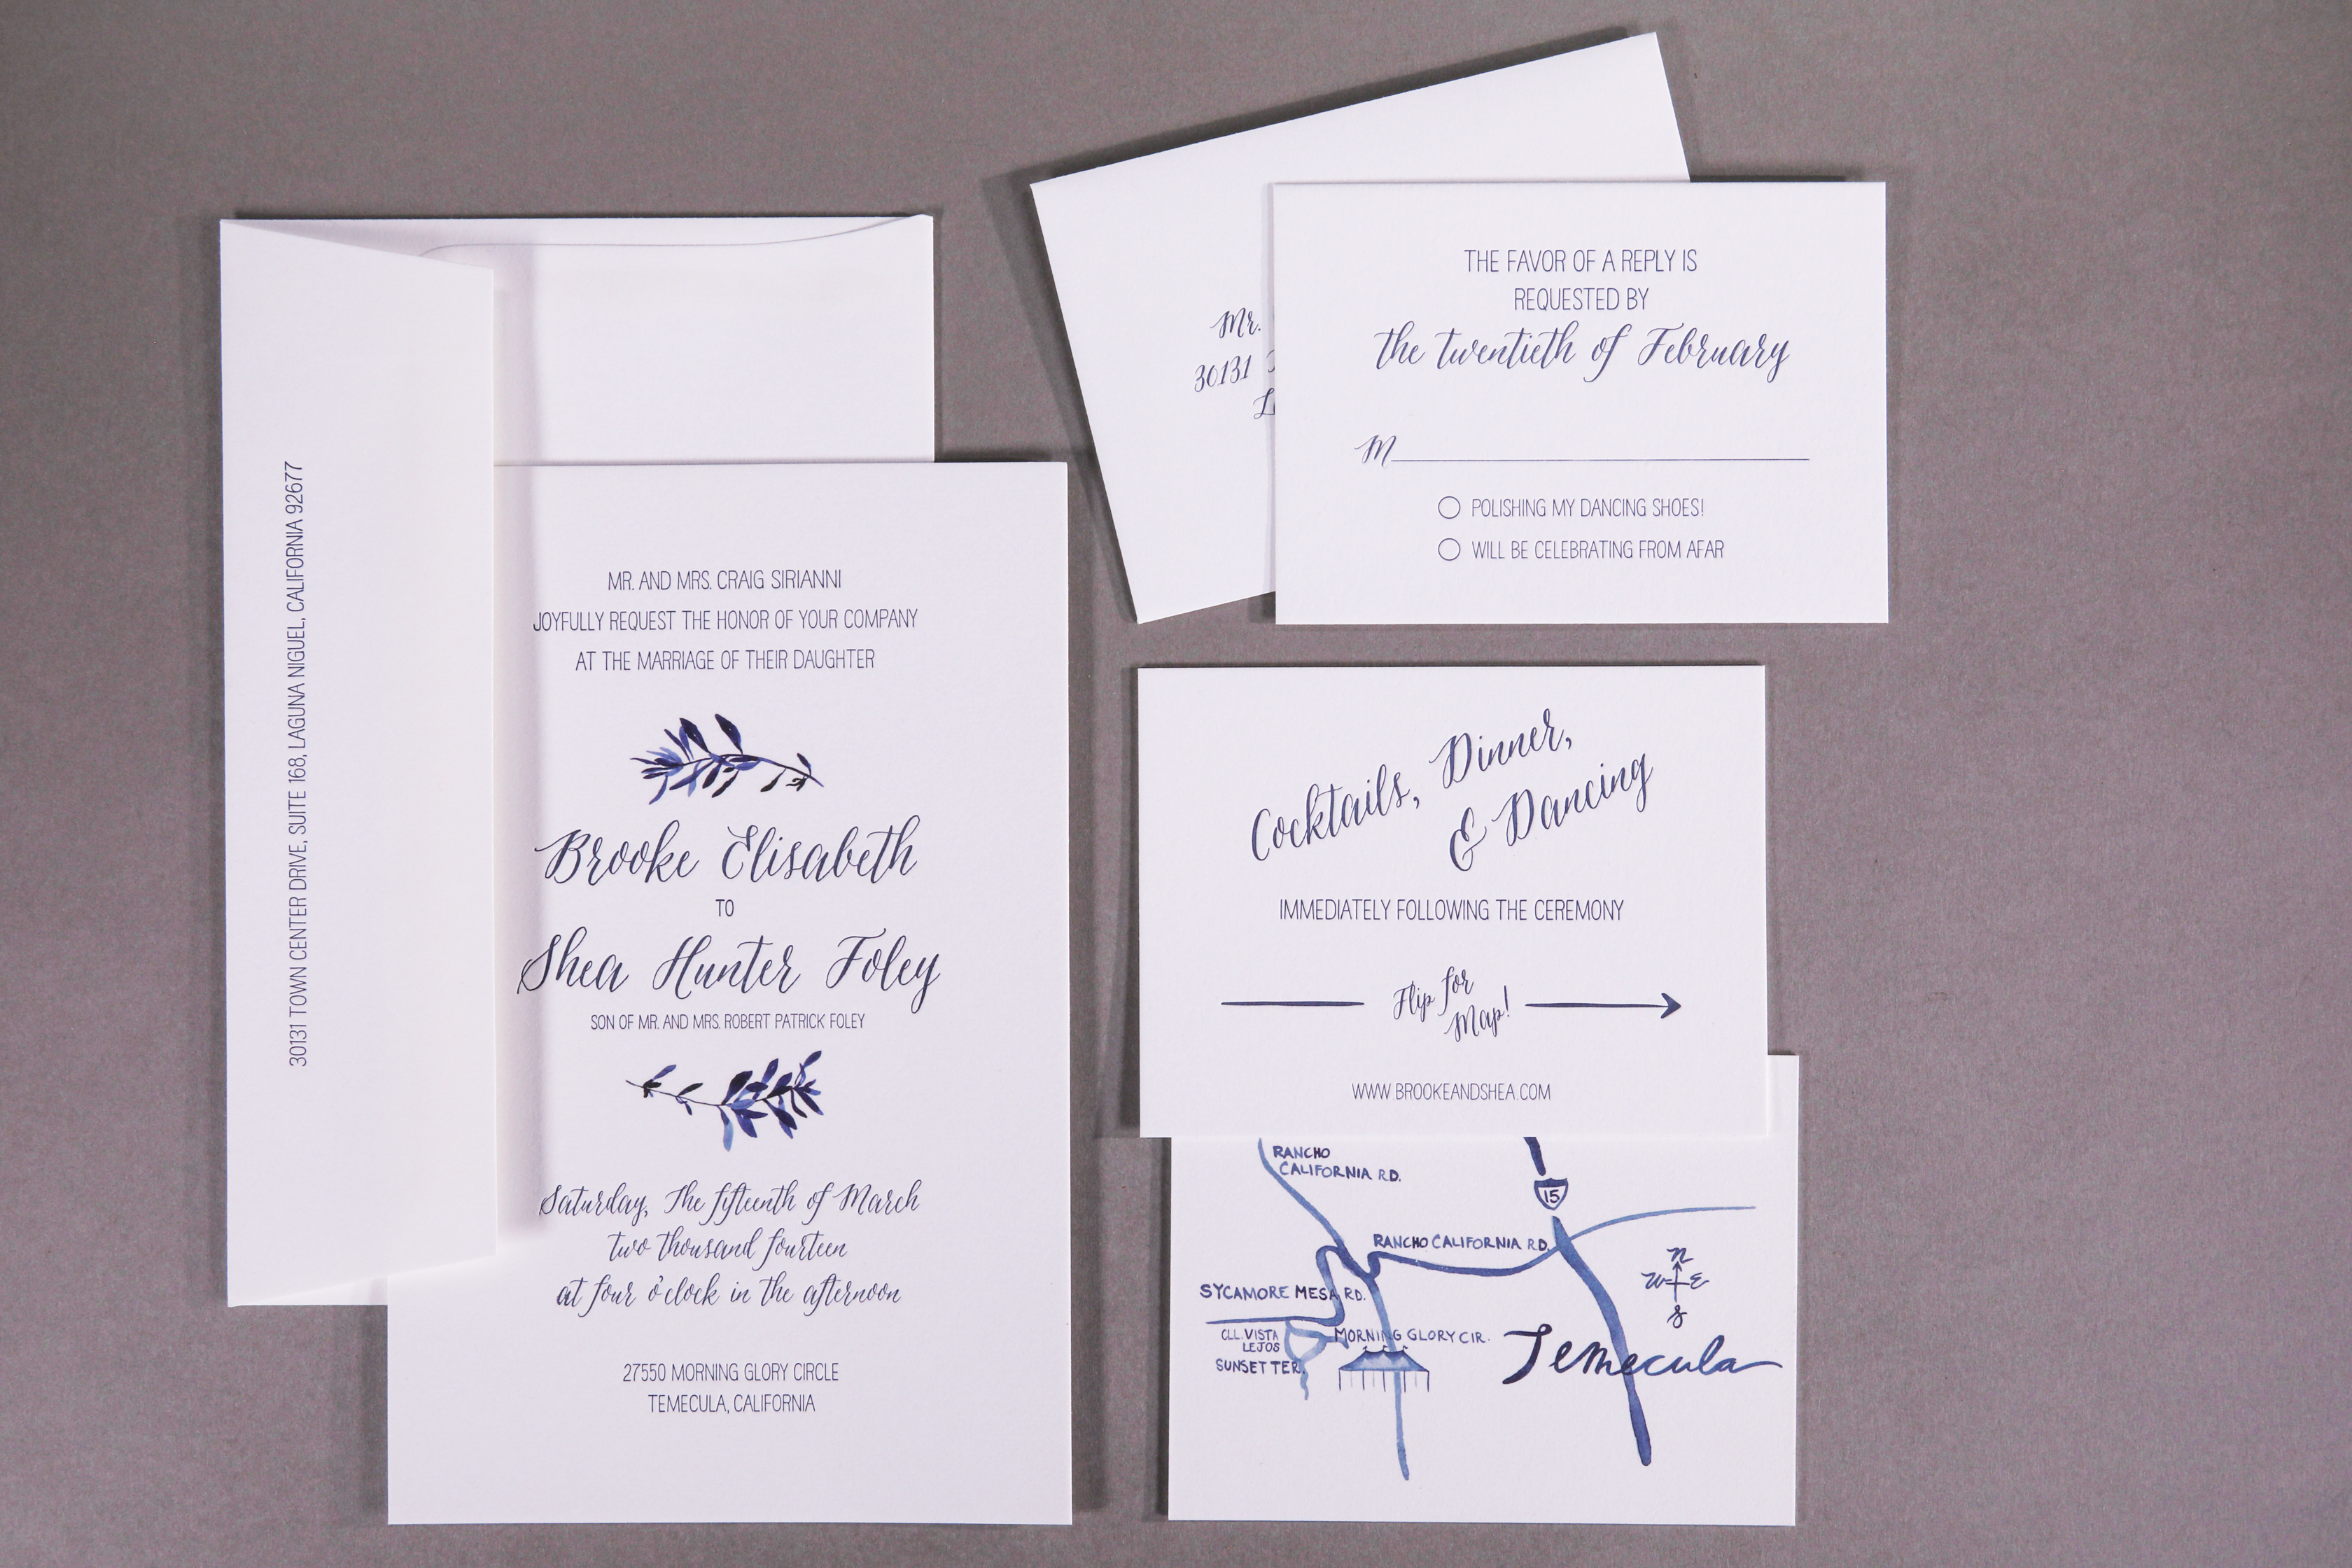 30131 TOWN CENTER DRIVE, SUITE 168, LAGUNA NIGUEL, CALIFORNIA 92677
MR. AND MRS. CRAIG SIRIANNI
JOYFULLY REQUEST THE HONOR OF YOUR COMPANY
AT THE MARRIAGE OF THEIR DAUGHTER
Brooke Elisabeth
TO
Shea Hunter Foley
SON OF MR. AND MRS. ROBERT PATRICK FOLEY
Saturday, The fifteenth of March
two thousand fourteen
at four o'clock in the afternoon
27550 MORNING GLORY CIRCLE
TEMECULA, CALIFORNIA
Mr.
30131
THE FAVOR OF A REPLY IS
REQUESTED BY
the twentieth of February
M
POLISHING MY DANCING SHOES!
WILL BE CELEBRATING FROM AFAR
Cocktails, Dinner,
& Dancing
IMMEDIATELY FOLLOWING THE CEREMONY
Flip for
Map!
WWW.BROOKEANDSHEA.COM
RANCHO
CALIFORNIA RD.
15
RANCHO CALIFORNIA RD.
N
W E
S
SYCAMORE MESA RD.
CLL. VISTA
LEJOS
MORNING GLORY CIR.
SUNSET TER.
Temecula